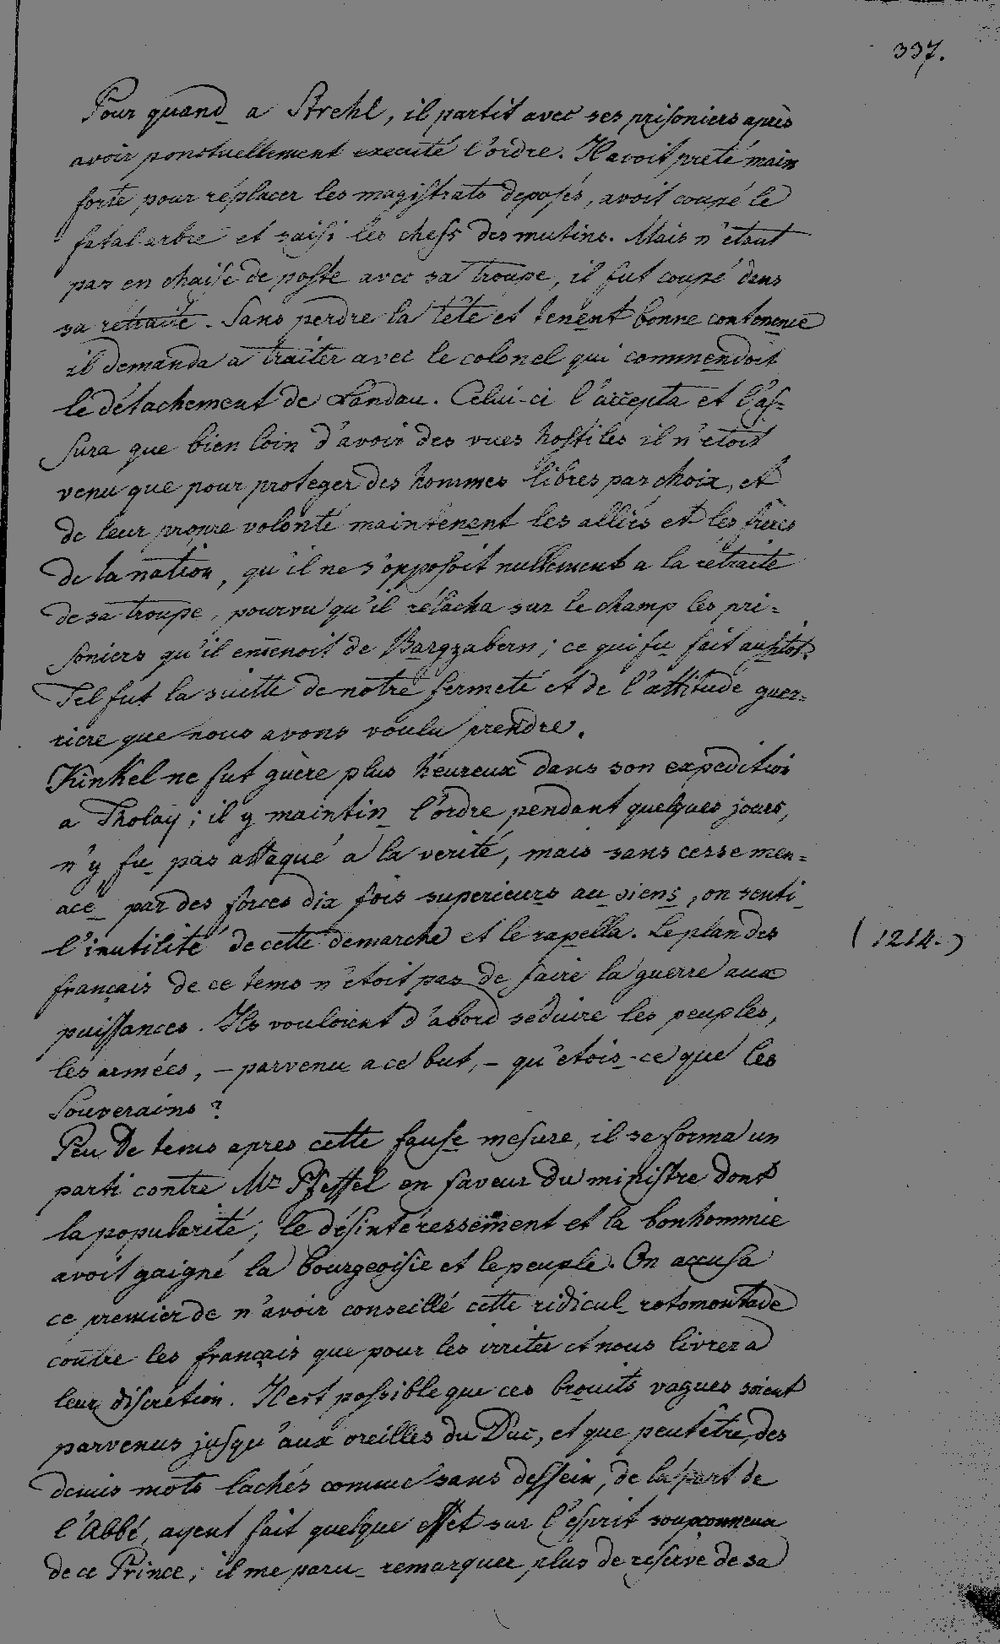 337.
Pour quand a Strehl, il partit avec ses prisoniers après
avoir ponctuellement executé l'ordre. Il avoit preté main
forte pour réplacer les magistrats deposés, avoit coupé le
fatal arbre et saisi les chefs des mutins. Mais n'étant
pas en chaise de poste avec sa troupe, il fut coupé dans
sa retraite. Sans perdre la tête et tenent bonne contenence
il demanda a traiter avec le colonel qui commendoit
le détachement de Landau. Celui-ci l'accepta et l'as-
sura que bien loin d'avoir des vues hostiles il n'etoit
venu que pour proteger des hommes libres par choix, et
de leur propre volonté maintenent les alliés et les frères
de la nation, qu'il ne s'opposoit nullement a la rétraite
de sa troupe, pourvu qu'il rélacha sur le champ les pri=
soniers qu'il emenoit de Bargzabern; ce qui fu fait aussitot.
Tel fut la suitte de notre fermeté et de l'attitude guer=
riere que nous avons voulu prendre.
Kinkel ne fut guère plus heureux dans son expedition
a Tholay; il y maintin l'ordre pendant quelques jours,
n'y fu pas attaqué a la verité, mais sans cesse men=
acé par des forces dix fois superieurs au siens, on senti
l'inutilité de cette demarche et le rapella. Le plan des
(1212.)
français de ce tems n'étoit pas de faire la guerre aux
puissances. Ils vouloient d'abord séduire les peuples,
les armées, - parvenu a ce but, - qu'etois-ce que les
Souverains?
Peu de tems apres cette fause mesure, il se forma un
parti contre Mr Pfeffel en faveur du ministre dont
la popularité, le désintéressement et la bonhommie
avoit gaigné la bourgeoisie et le peuple. On accusa
ce premier de n'avoir conseillé cette ridicul rotomontade
contre les français que pour les irriter et nous livrer a
leur discretion. Il est possible que ces brouits vagues soient
parvenus jusqu'aux oreilles du Duc, et que peutêtre, des
demis mots lachés comme sans dessein, de la part de
l'Abbé, ayent fait quelque effet sur l'esprit soupconneux
de ce Prince; il me paru remarquer plus de réserve de sa